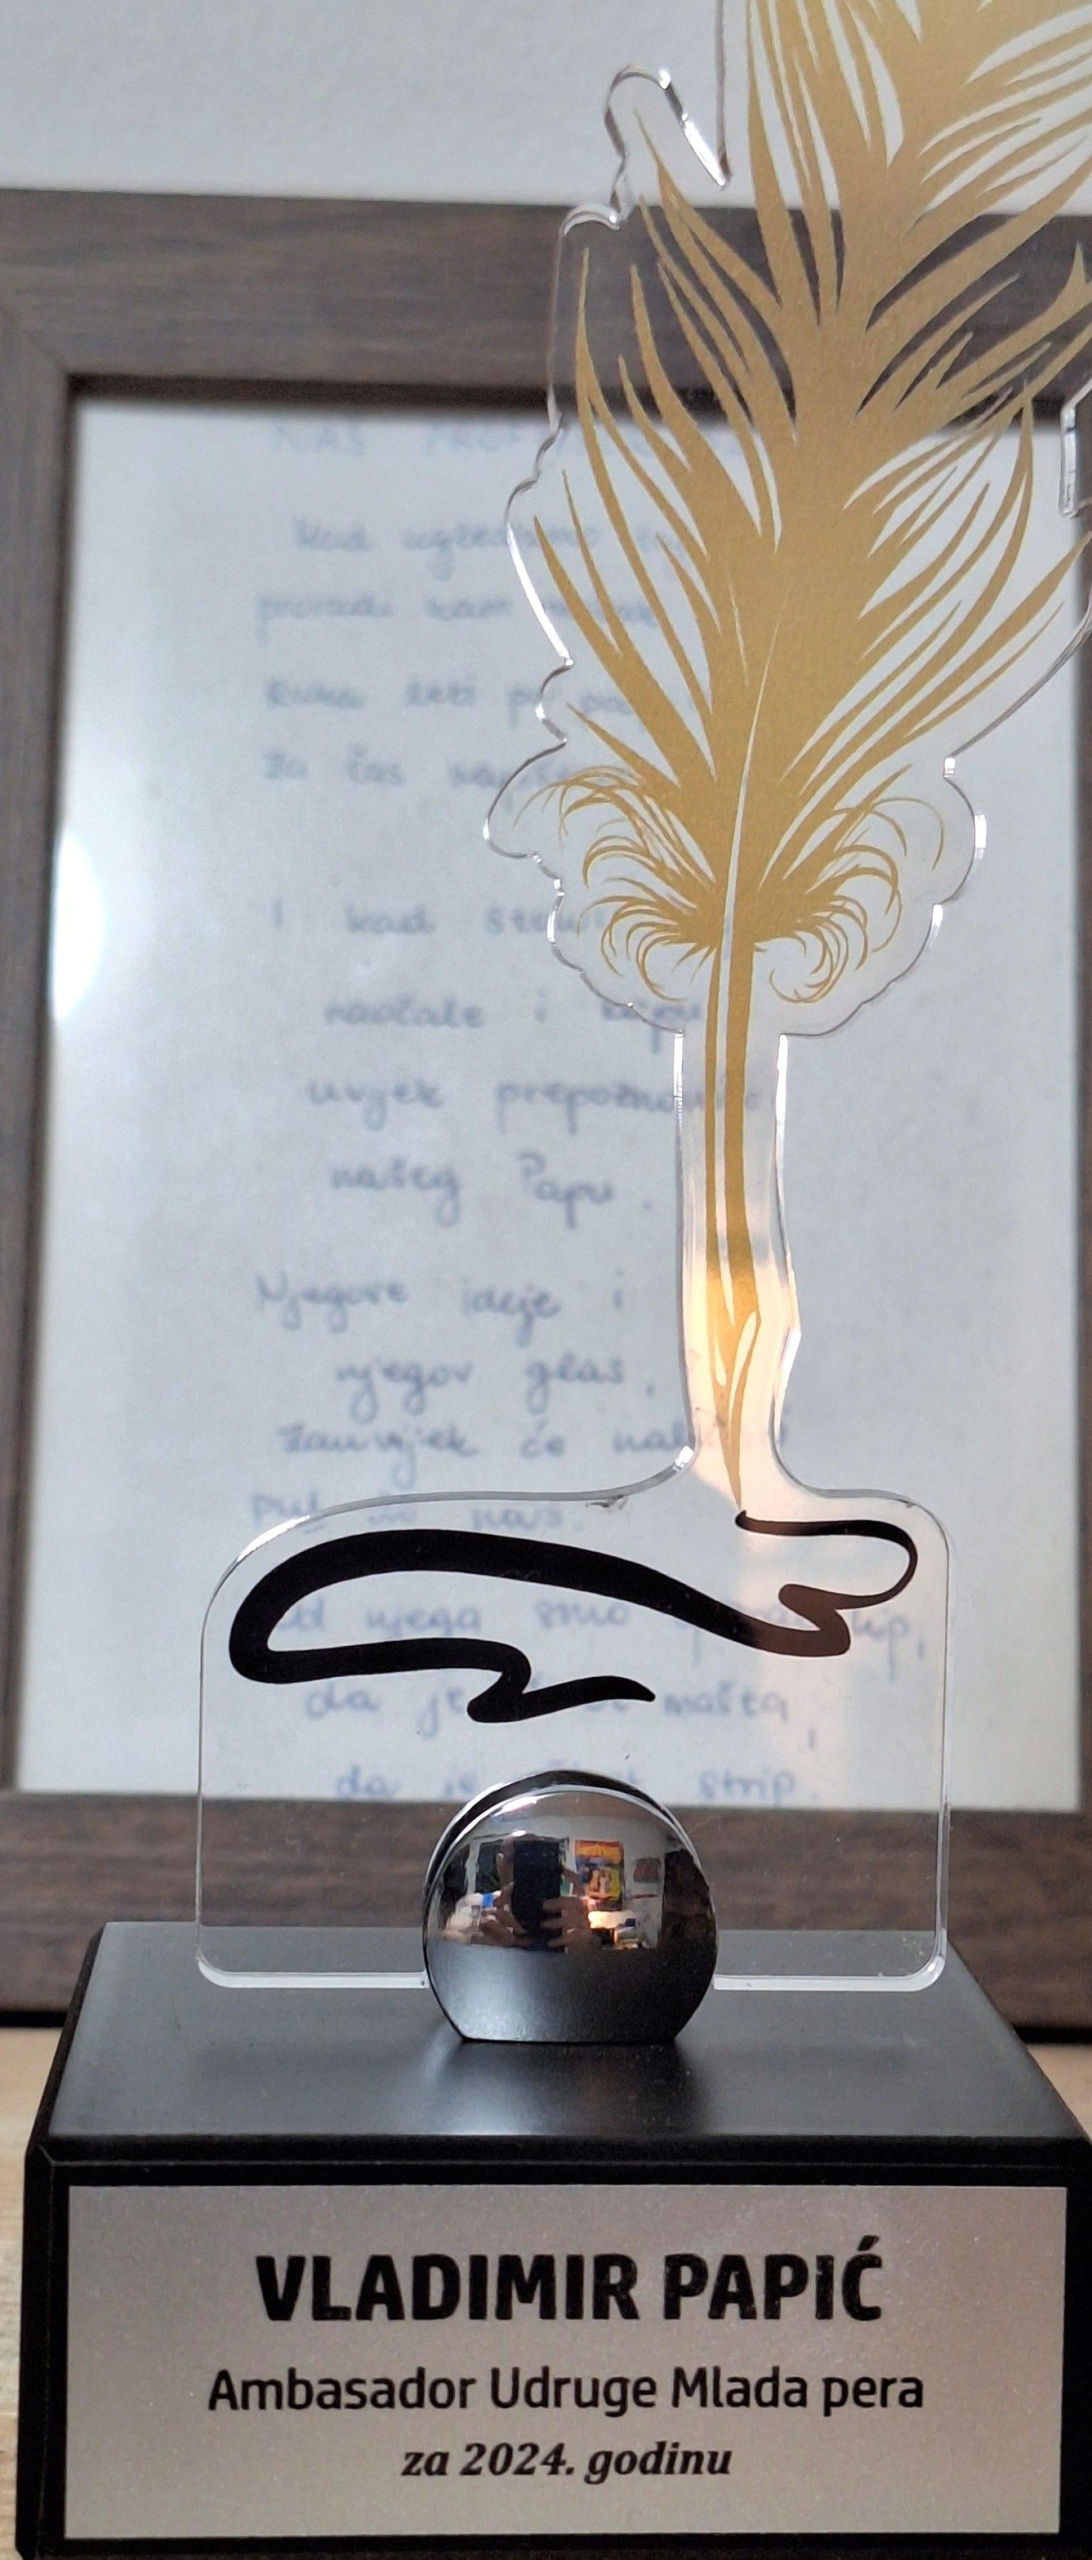 NAŠ
kad ugledamo
proradi nam
Ruka leti po
Za čas
I kad
naočale i kapu
uvjek
našeg Papu.
Njegove ideje i
njegov glas,
zauvjek će
put do nas.
njega smo
da je mašta,
da je strip.
VLADIMIR PAPIĆ
Ambasador Udruge Mlada pera
za 2024. godinu